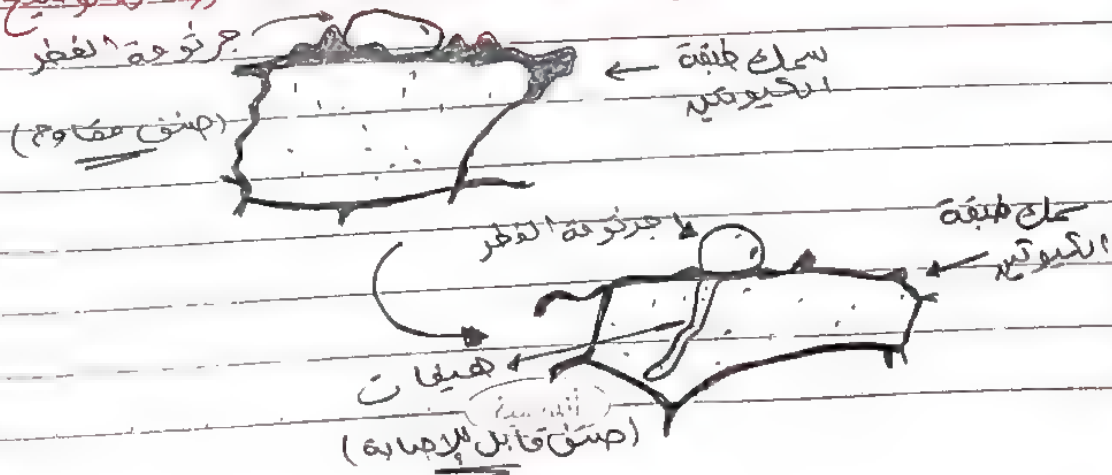 جرثومة الفطر
سمك طبقة
الكيوتين
(صنف مقاوم)
جرثومة الفطر
سمك طبقة
الكيوتين
هيفات
(صنف قابل للإصابة)